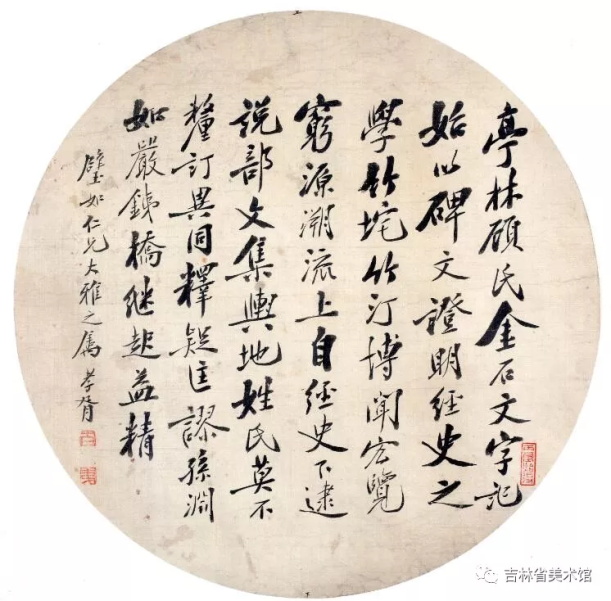 亭林顾氏金石文字記
始以碑文證明經史之
學竹垞竹汀博聞宏覽
窮源溯流上自經史下逮
説部文集輿地姓氏莫不
釐訂異同釋疑匡謬孫淵
如嚴鐵橋继起益精
璧如仁兄大雅之屬 孝胥
吉林省美术馆